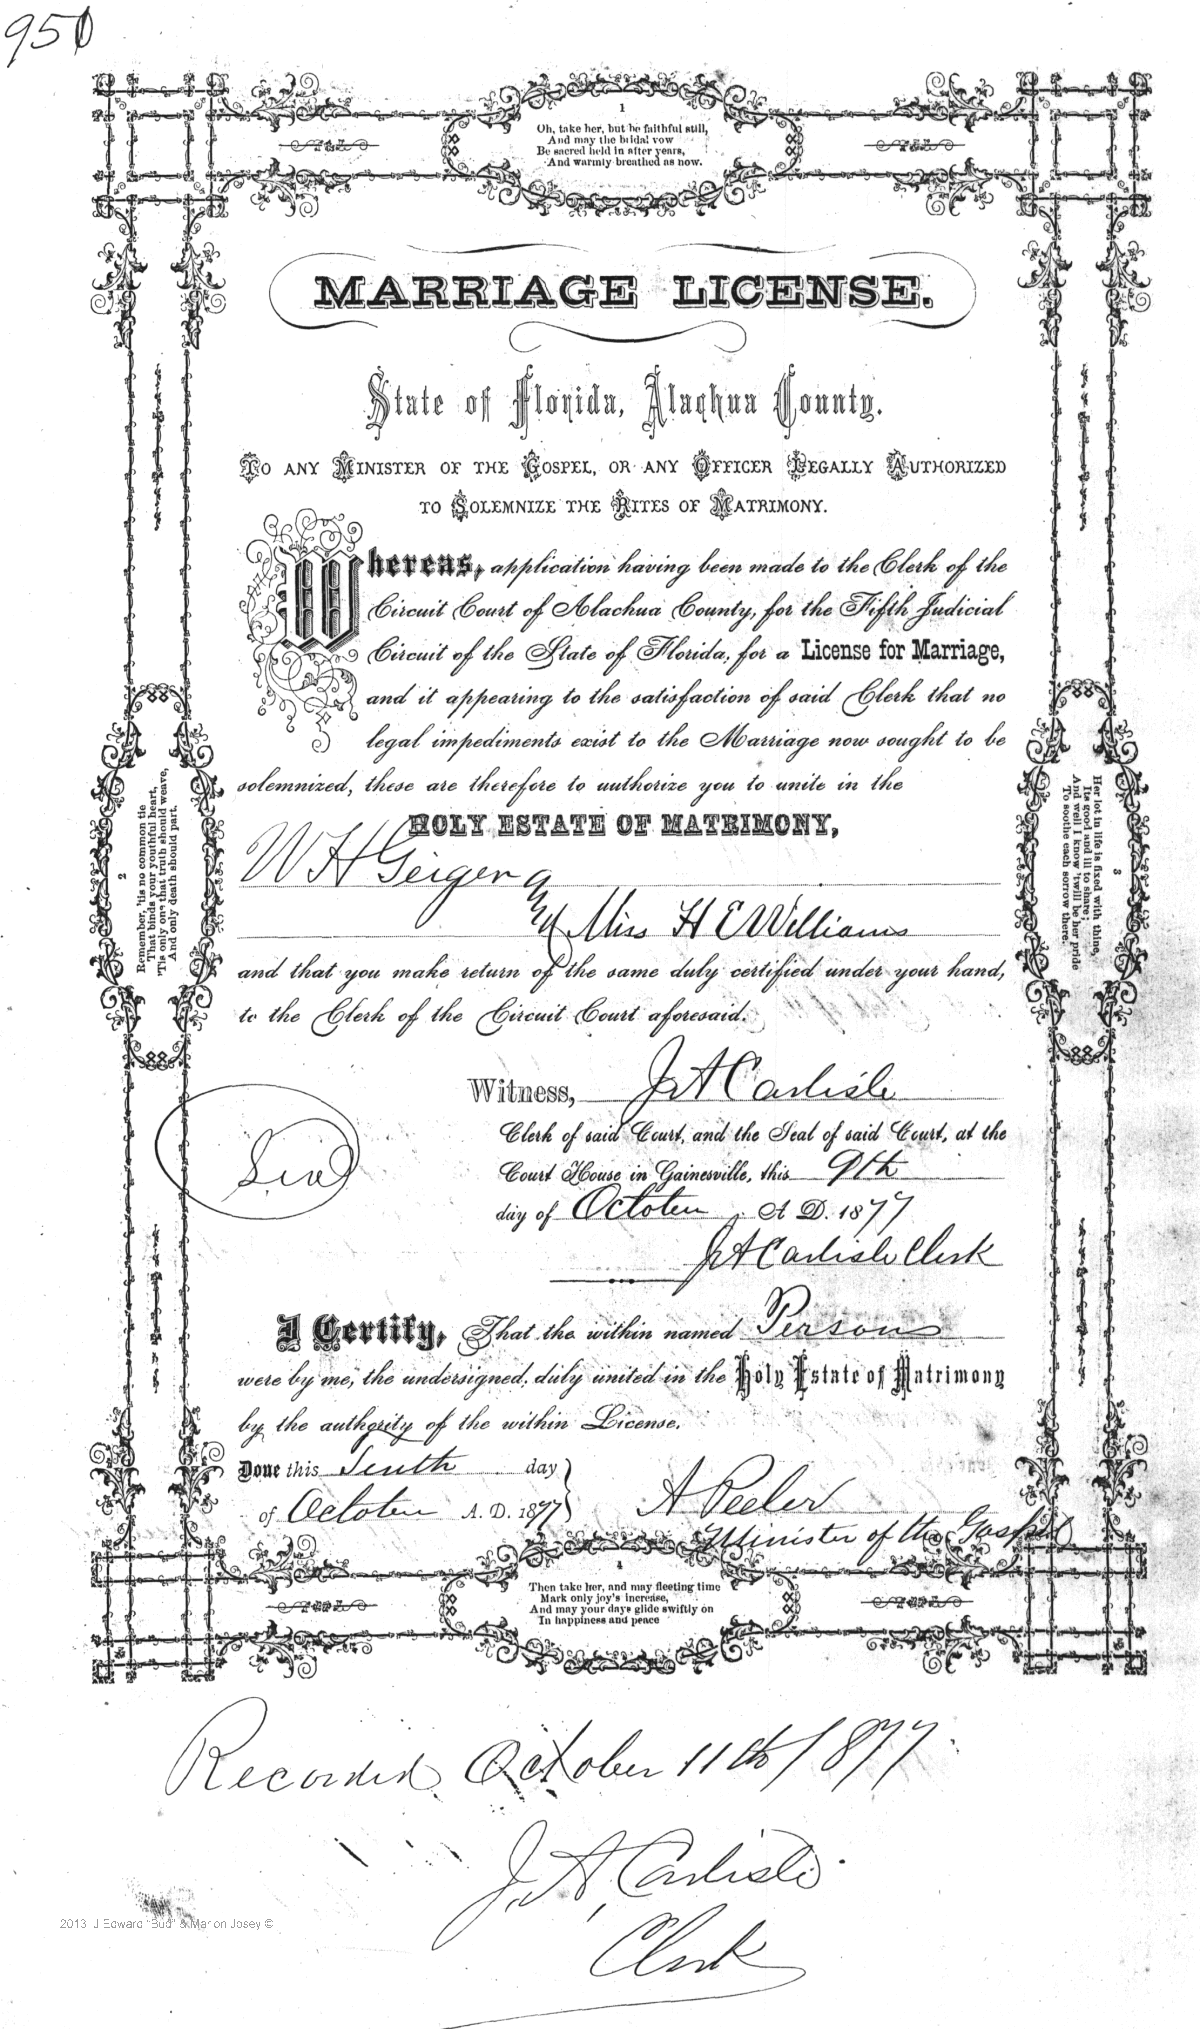 950
1
Oh, take her, but be faithful still,
And may the bridal vow
Be sacred held in after years,
And warmly breathed as now.
MARRIAGE LICENSE.
State of Florida, Alachua County.
TO ANY MINISTER OF THE GOSPEL, OR ANY OFFICER LEGALLY AUTHORIZED
TO SOLEMNIZE THE RITES OF MATRIMONY.
Whereas, application having been made to the Clerk of the
Circuit Court of Alachua County, for the Fifth Judicial
Circuit of the State of Florida, for a License for Marriage,
and it appearing to the satisfaction of said Clerk that no
legal impediments exist to the Marriage now sought to be
solemnized, these are therefore to authorize you to unite in the
HOLY ESTATE OF MATRIMONY,
W H Geiger and
Miss H E Williams
and that you make return of the same duly certified under your hand,
to the Clerk of the Circuit Court aforesaid.
2
Remember, 'tis no common tie
That binds your youthful heart,
'Tis only one that truth should weave,
And only death should part.
3
Her lot in life is fixed with thine,
Its good and ill to share;
And well I know 'twill be her pride
To soothe each sorrow there.
Witness, J A Carlisle
Clerk of said Court, and the Seal of said Court, at the
Court House in Gainesville, this 9th
day of October A D. 1877
J A Carlisle Clerk
I Certify, That the within named Persons
were by me, the undersigned, duly united in the Holy Estate of Matrimony
by the authority of the within License.
Done this Tenth day
of October A. D. 1877
A Peeler
Minister of the Gospel
4
Then take her, and may fleeting time
Mark only joy's increase,
And may your days glide swiftly on
In happiness and peace
Recorded October 11th 1877
J. A. Carlisle
Clerk
2013 J Edward "Bud" & Marion Josey ©